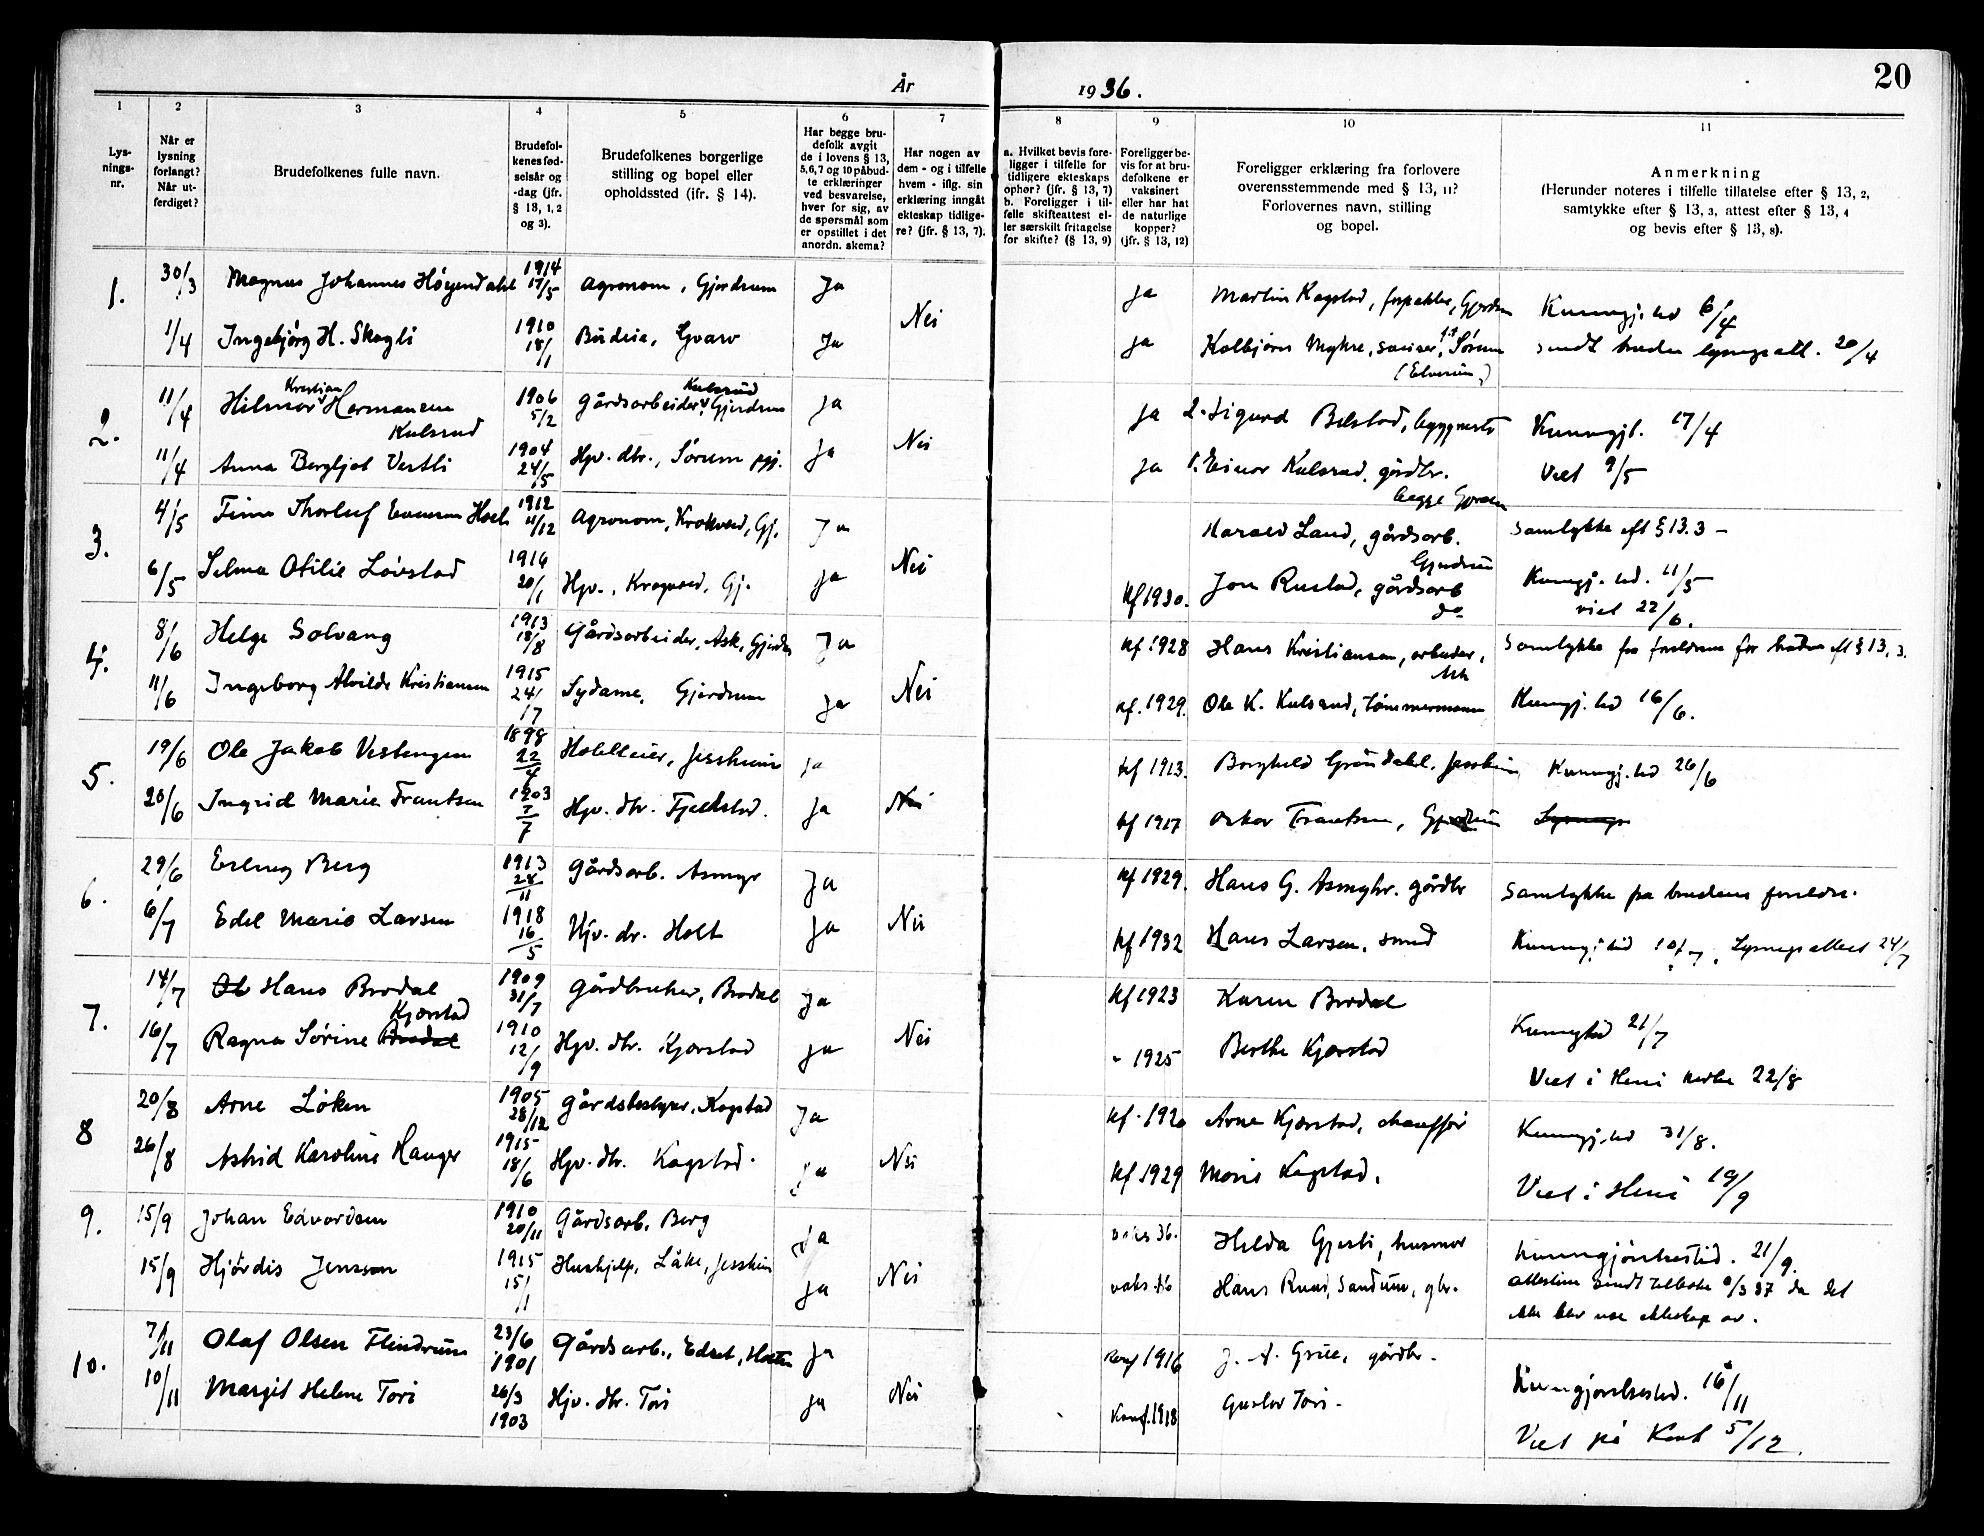 20
År 1936.
1 2 3 4 5 6 7 8 9 10 11
Lysningsnr.
Når er lysning forlangt? Når utferdiget?
Brudefolkenes fulle navn.
Brudefolkenes fødselsår og -dag (jfr. § 13, 1, 2 og 3).
Brudefolkenes borgerlige stilling og bopel eller opholdssted (jfr. § 14).
Har begge brudefolk avgit de i lovens § 13, 5, 6, 7 og 10 påbudte erklæringer ved besvarelse, hver for sig, av de spørsmål som er opstillet i det anordn. skema?
Har nogen av dem - og i tilfelle hvem - iflg. sin erklæring inngått ekteskap tidligere? (jfr. § 13, 7).
a. Hvilket bevis foreligger i tilfelle for tidligere ekteskaps ophør? (jfr. § 13, 7) b. Foreligger i tilfelle skifteattest eller særskilt fritagelse for skifte? (§ 13, 9)
Foreligger bevis for at brudefolkene er vaksinert eller har hat de naturlige kopper? (jfr. § 13, 12)
Foreligger erklæring fra forlovere overensstemmende med § 13, 11? Forlovernes navn, stilling og bopel.
Anmerkning (Herunder noteres i tilfelle tillatelse efter § 13, 2, samtykke efter § 13, 3, attest efter § 13, 4 og bevis efter § 13, 8).
1. 30/3 Magnus Johannes 1914 17/5 Agronom, Gjerdrum Ja Ja Martin Kogstad, forpakter, Kunngj. tid 6/4
1/4 Ingebjörg H. Skogli 1910 18/1 Budeie, Ja Nei Ja Kolbjörn Myhre, Sörum (Elverum) sendt lysn.att. 20/4
2. 11/4 Hilmar Kristian Hermansen Kulsrud 1906 5/2 Gårdsarbeider, Kulsrud Gjerdrum Ja Ja 2. Sigurd Kunngj.t. 17/4
11/4 Anna Bergljot Vestli 1904 24/5 Hjv. dtr., Sörum pgj. Ja Nei Ja 1. Einar Kulsrud, gårdbr. Viet 9/5
3. 4/5 Finn Thorleif 1912 11/12 Agronom, Krokvad, Gj. Ja Harald Sand, gårdsarb. Gjerdrum Samtykke eft § 13.3 –
6/5 Selma Otilie Lövstad 1916 20/1 Hjv., Krogvad, Gj. Ja Nei kf 1930. Jon Rustad, gårdsarb do Kunngj. tid. 11/5
viet 22/6.
4. 8/6 Helge Solvang 1913 18/8 Gårdsarbeider, Ask, Gjerdr Ja kf 1928 Hans Kristiansen, arbeider, Ask Samtykke fra foreldrene for bruden eft § 13, 3.
11/6 Ingeborg Alvilde Kristiansen 1915 24/7 Sydame, Gjerdrum Ja Nei kf. 1929. Ole K. Kulsrud, tömmermann Kunngj. tid 16/6.
5. 19/6 Ole Jakob Vestengen 1898 22/4 Hotelleier, Jessheim Ja kf 1913. Borghild Gröndahl, Jessheim Kunngj. tid 26/6
20/6 Ingrid Marie Frantsen 1903 7/7 Hjv. dtr. Fjeldstad. Ja Nei kf 1917 Oskar Frantsen, Gjerdrum
6. 29/6 Erling Berg 1913 28/11 Gårdsarb. Asmyr Ja kf 1929. Hans G. Asmyhr. gårdbr Samtykke fra brudens foreldre.
6/7 Edel Marie Larsen 1918 16/5 Hjv. dr. Holt Ja Nei kf 1932 Hans Larsen, smed Kunngj. tid 10/7. Lysningsattest 24/7
7. 14/7 Hans Brodal 1909 31/7 Gårdbruker, Brodal Ja kf 1923 Karen Brodal
16/7 Ragna Sörine Brodal Kjorstad 1910 12/9 Hjv. dtr. Kjorstad Ja Nei " 1925 Berthe Kjorstad Kunngj tid 21/7
Viet i Heni kirke 22/8
8 20/8 Arne Löken 1905 28/12 Gårdsbestyrer, Kogstad Ja kf. 1920 Arne Kjorstad, chaufför Kunngj. tid 31/8.
26/8 Astrid Karoline Hauger 1915 18/6 Hjv. dtr. Kogstad. Ja Nei kf 1929 Kogstad. Viet i Heni 19/9
9. 15/9 Johan Edvardsen 1910 20/11 Gårdsarb. Berg Ja vaks 36. Hilda Gjesti, husmor Kunngjörelsestid. 21/9.
15/9 Hjördis Jenssen 1915 15/1 Hushjelp, Jessheim Ja Nei vaks 36 Hans Sandum, gbr. Attestene sendt tilbake 9/3 37 da det
ikke blev noe ekteskap av.
10. 7/11 Olaf Olsen Flendrum 23/6 1901 Gårdsarb., Ja konf 1916 J. A. Grue, gårdbr.
10/11 Margit Helene Tori 26/3 1903 Hjv. dtr. Tori Ja Nei Konf. 1918 Gustav Tori. Kunngjörelsestid. 16/11
Viet på 5/12.